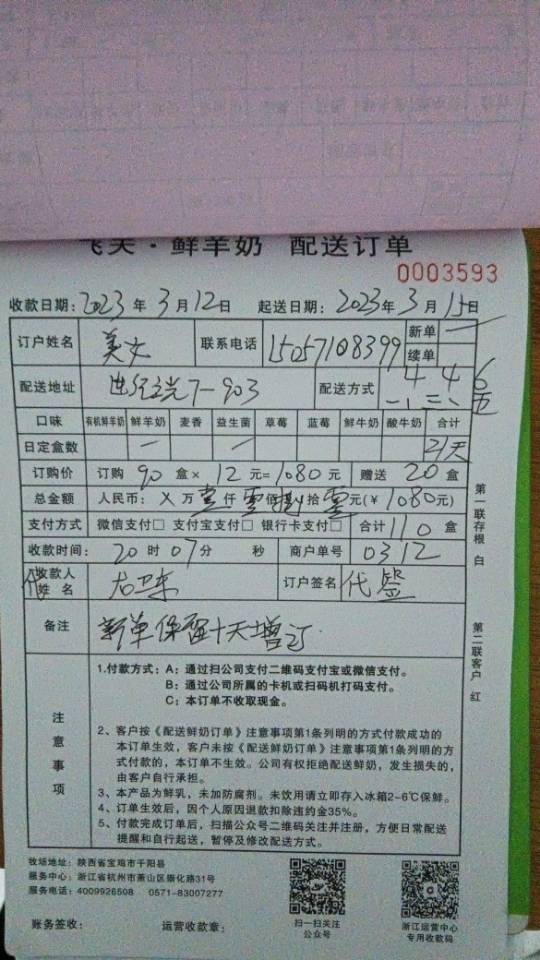 飞天·鲜羊奶 配送订单
0003593
收款日期：2023年3月12日 起送日期：2023年3月15日
订户姓名 美女 联系电话 15057108399 新单 一
续单
配送地址 世纪 7-903 配送方式 4 4 6
一、三、五
口味 有机鲜羊奶 鲜羊奶 麦香 益生菌 草莓 蓝莓 鲜牛奶 酸牛奶 合计
日定盒数 一 一 21天
订购价 订购 90 盒× 12 元=1080元 赠送 20 盒
总金额 人民币：X万壹仟零佰捌拾零元(¥1080元)
支付方式 微信支付□ 支付宝支付□ 银行卡支付□ 合计110盒
收款时间： 20时07分 秒 商户单号 0312
代收款人
姓 名 卫东 订户签名 代签
备注 新单保留十天增订
注意事项
1.付款方式：A：通过扫公司支付二维码支付宝或微信支付。
B：通过公司所属的卡机或扫码机打码支付。
C：本订单不收取现金。
2、客户按《配送鲜奶订单》注意事项第1条列明的方式付款成功的
本订单生效，客户未按《配送鲜奶订单》注意事项第1条列明的方
式付款的，本订单不生效。公司有权拒绝配送鲜奶，发生损失的，
由客户自行承担。
3、本产品为鲜乳，未加防腐剂。未饮用请立即存入冰箱2-6℃保鲜。
4、订单生效后，因个人原因退款扣除违约金35%。
5、付款完成订单后，扫描公众号二维码关注并注册，方便日常配送
提醒和自行起送，暂停及修改配送方式。
第一联存根 白
第二联客户 红
牧场地址：陕西省宝鸡市千阳县
服务中心：浙江省杭州市萧山区崇化路31号
服务电话：4009926508 0571-83007277
扫一扫关注
公众号
浙江运营中心
专用收款码
账务签收： 运营收款章：